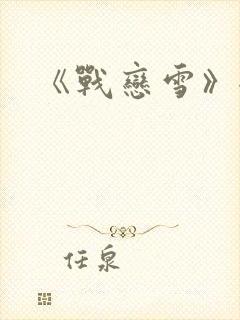 《戰戀雪》
任泉